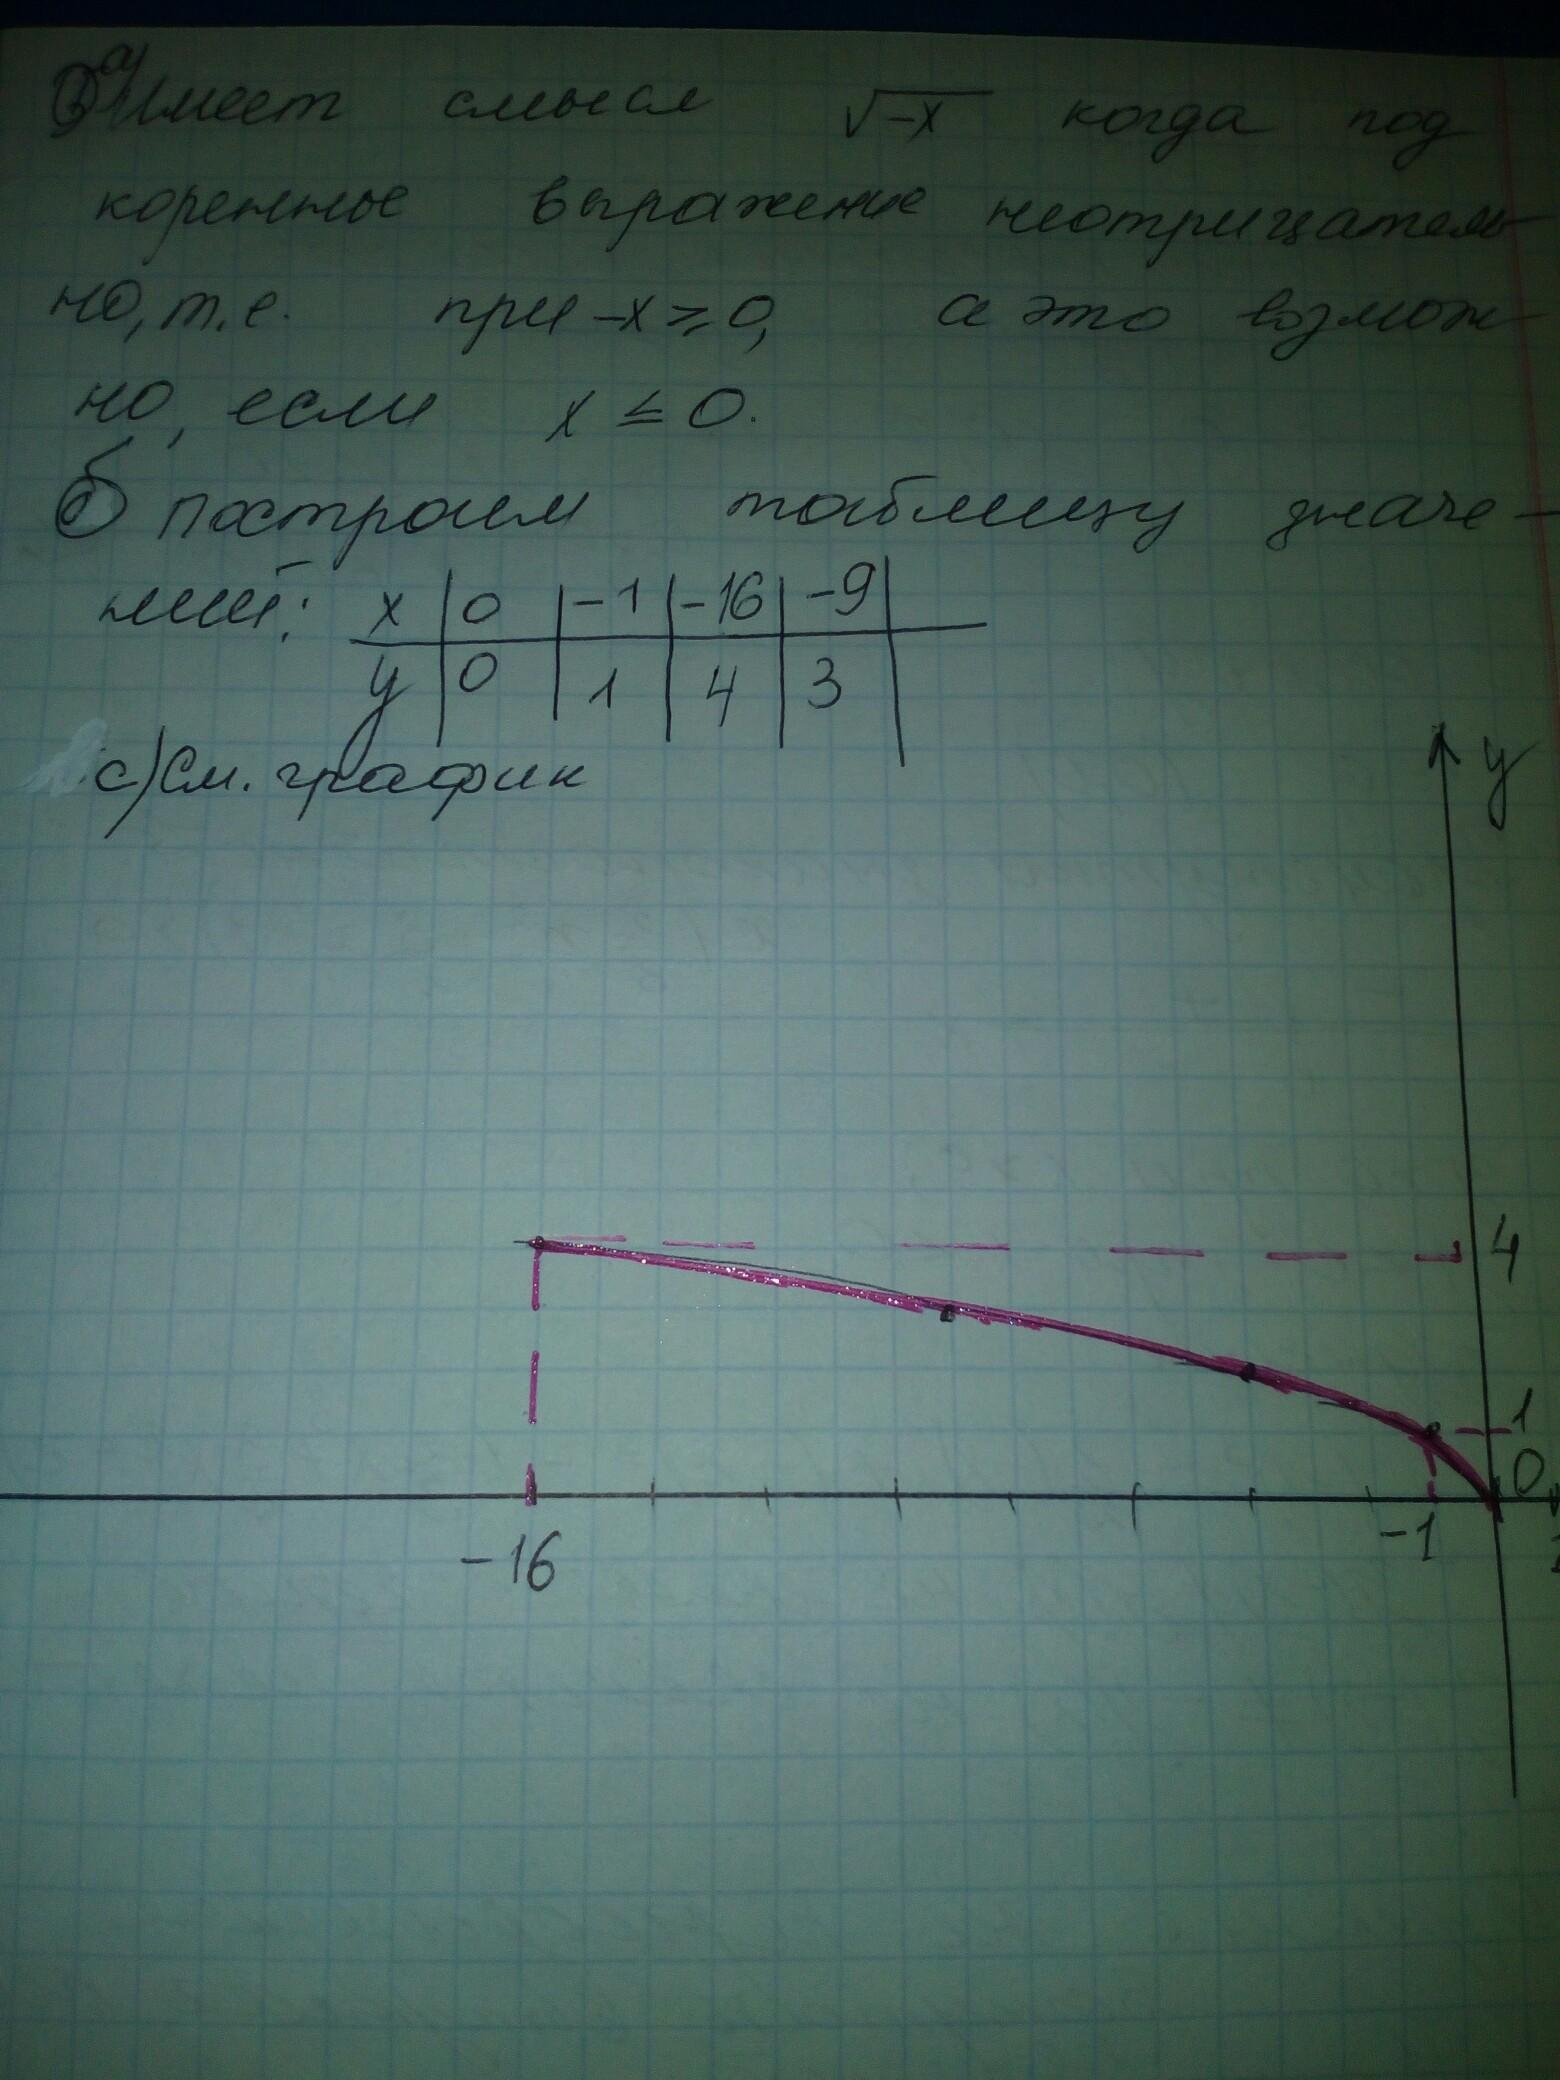 а) Имеет смысл √-x когда под
коренное выражение неотрицатель
но, т.е. при -x ≥ 0, а это возмож
но, если x ≤ 0.
б) построим таблицу значе-
ний:
x | 0 | -1 | -16 | -9
y | 0 | 1 | 4 | 3
с) См. график
y
4
1
0
-16 -1